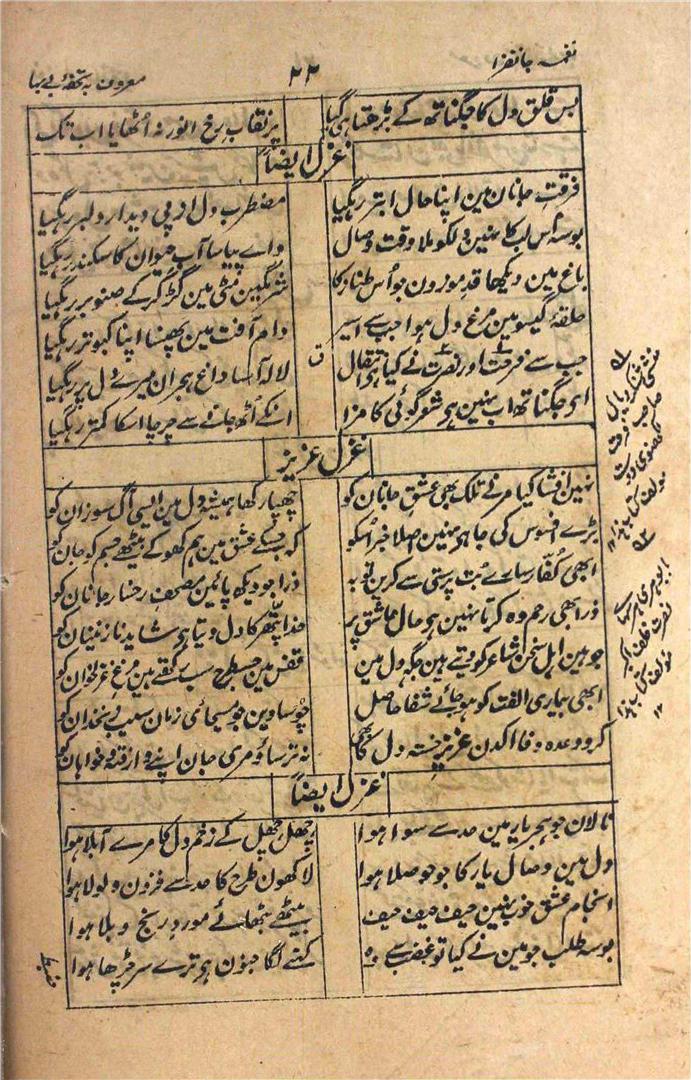 نغمہ جانفزا
۲۲
معروف بہ تحفۂ بے بہا
بس قلق دل کا جگناتھ کے بڑھتا ہی گیا
پر نقاب رخ انور نہ اٹھایا اب تک
غزل ایضاً
فرقت جانان مین اپنا حال ابتر رہگیا
مضطرب دل از پی دیدار دلبر رہگیا
بوسہ اُس لب کا نہین دلکو ملا وقت وصال
واے پیاسا آب حیوان کا سکندر رہگیا
باغ مین دیکھا قد موزون جو اُس طناز کا
شرمگین مٹی مین گڑ کر کے صنوبر رہگیا
حلقۂ گیسو مین مرغ دل ہوا جب سے اسیر
دام آفت مین پھنسا اپنا کبوتر رہگیا
جب سے فرحت اور نصرت نے کیا ہی انتقال
ق
لالہ آسا داغ ہجران میرے دل پر رہگیا
ای جگناتھ اب نہین ہی شعر گوئی کا مزا
انکے اُٹھ جانے سے چرچا اسکا کمتر رہگیا
غزل عزیز
نہین افشا کیا مرنے تلک بھی عشق جانان کو
چھپا رکھا ہمیشہ دل مین ایسی آگ سوزان کو
بڑے افسوس کی جا ہی نہین اصلا خبر اُسکو
کہ جسکے عشق مین ہم کھو کے بیٹھے جسم کو جان کو
ابھی کفار سارے بت پرستی سے کرین توبہ
ذرا جو دیکھ پائین مصحف رخسار جانان کو
ذرا بھی رحم وہ کرتا نہین ہی حال عاشق پر
خدا پتھر کا دل دیتا ہی شاید نازنینان کو
جو ہین اہل سخن شاعر کو دیتے ہین جگہ دل مین
قفس مین جسطرح سب رکھتے ہین مرغ غزلخوان کو
ابھی بیماری الفت کو ہو جائے شفا حاصل
چوسا دین جو مسیحائی زمان سیب زنخدان کو
کرو وعدہ وفا اکدن عزیز خستہ دل کا بھی
نہ ترساؤ مری جان اپنے وارفتہ و خواہان کو
غزل ایضاً
نالان جو ہجر یار مین حد سے سوا ہوا
چھل چھل کے زخم دل کا مرے آبلا ہوا
دل مین وصال یار کا جو حوصلا ہوا
لاکھون طرح کا حد سے فزون ولولا ہوا
انجام عشق خوب نہین حیف حیف حیف
بیٹھے بٹھائے مورد رنج و بلا ہوا
بوسہ طلب جو مین نے کیا تو غضب سے وہ
کہنے لگا جنون ہی ترے سر چڑھا ہوا
منشی شنکر دیال
صاحب فرحت
لکھنوی دوست
مولف کتاب ہذا ۱۲
بابو ہری ہر سہا
نصرت خلف اکبر
مولف کتاب ہذا
۱۲